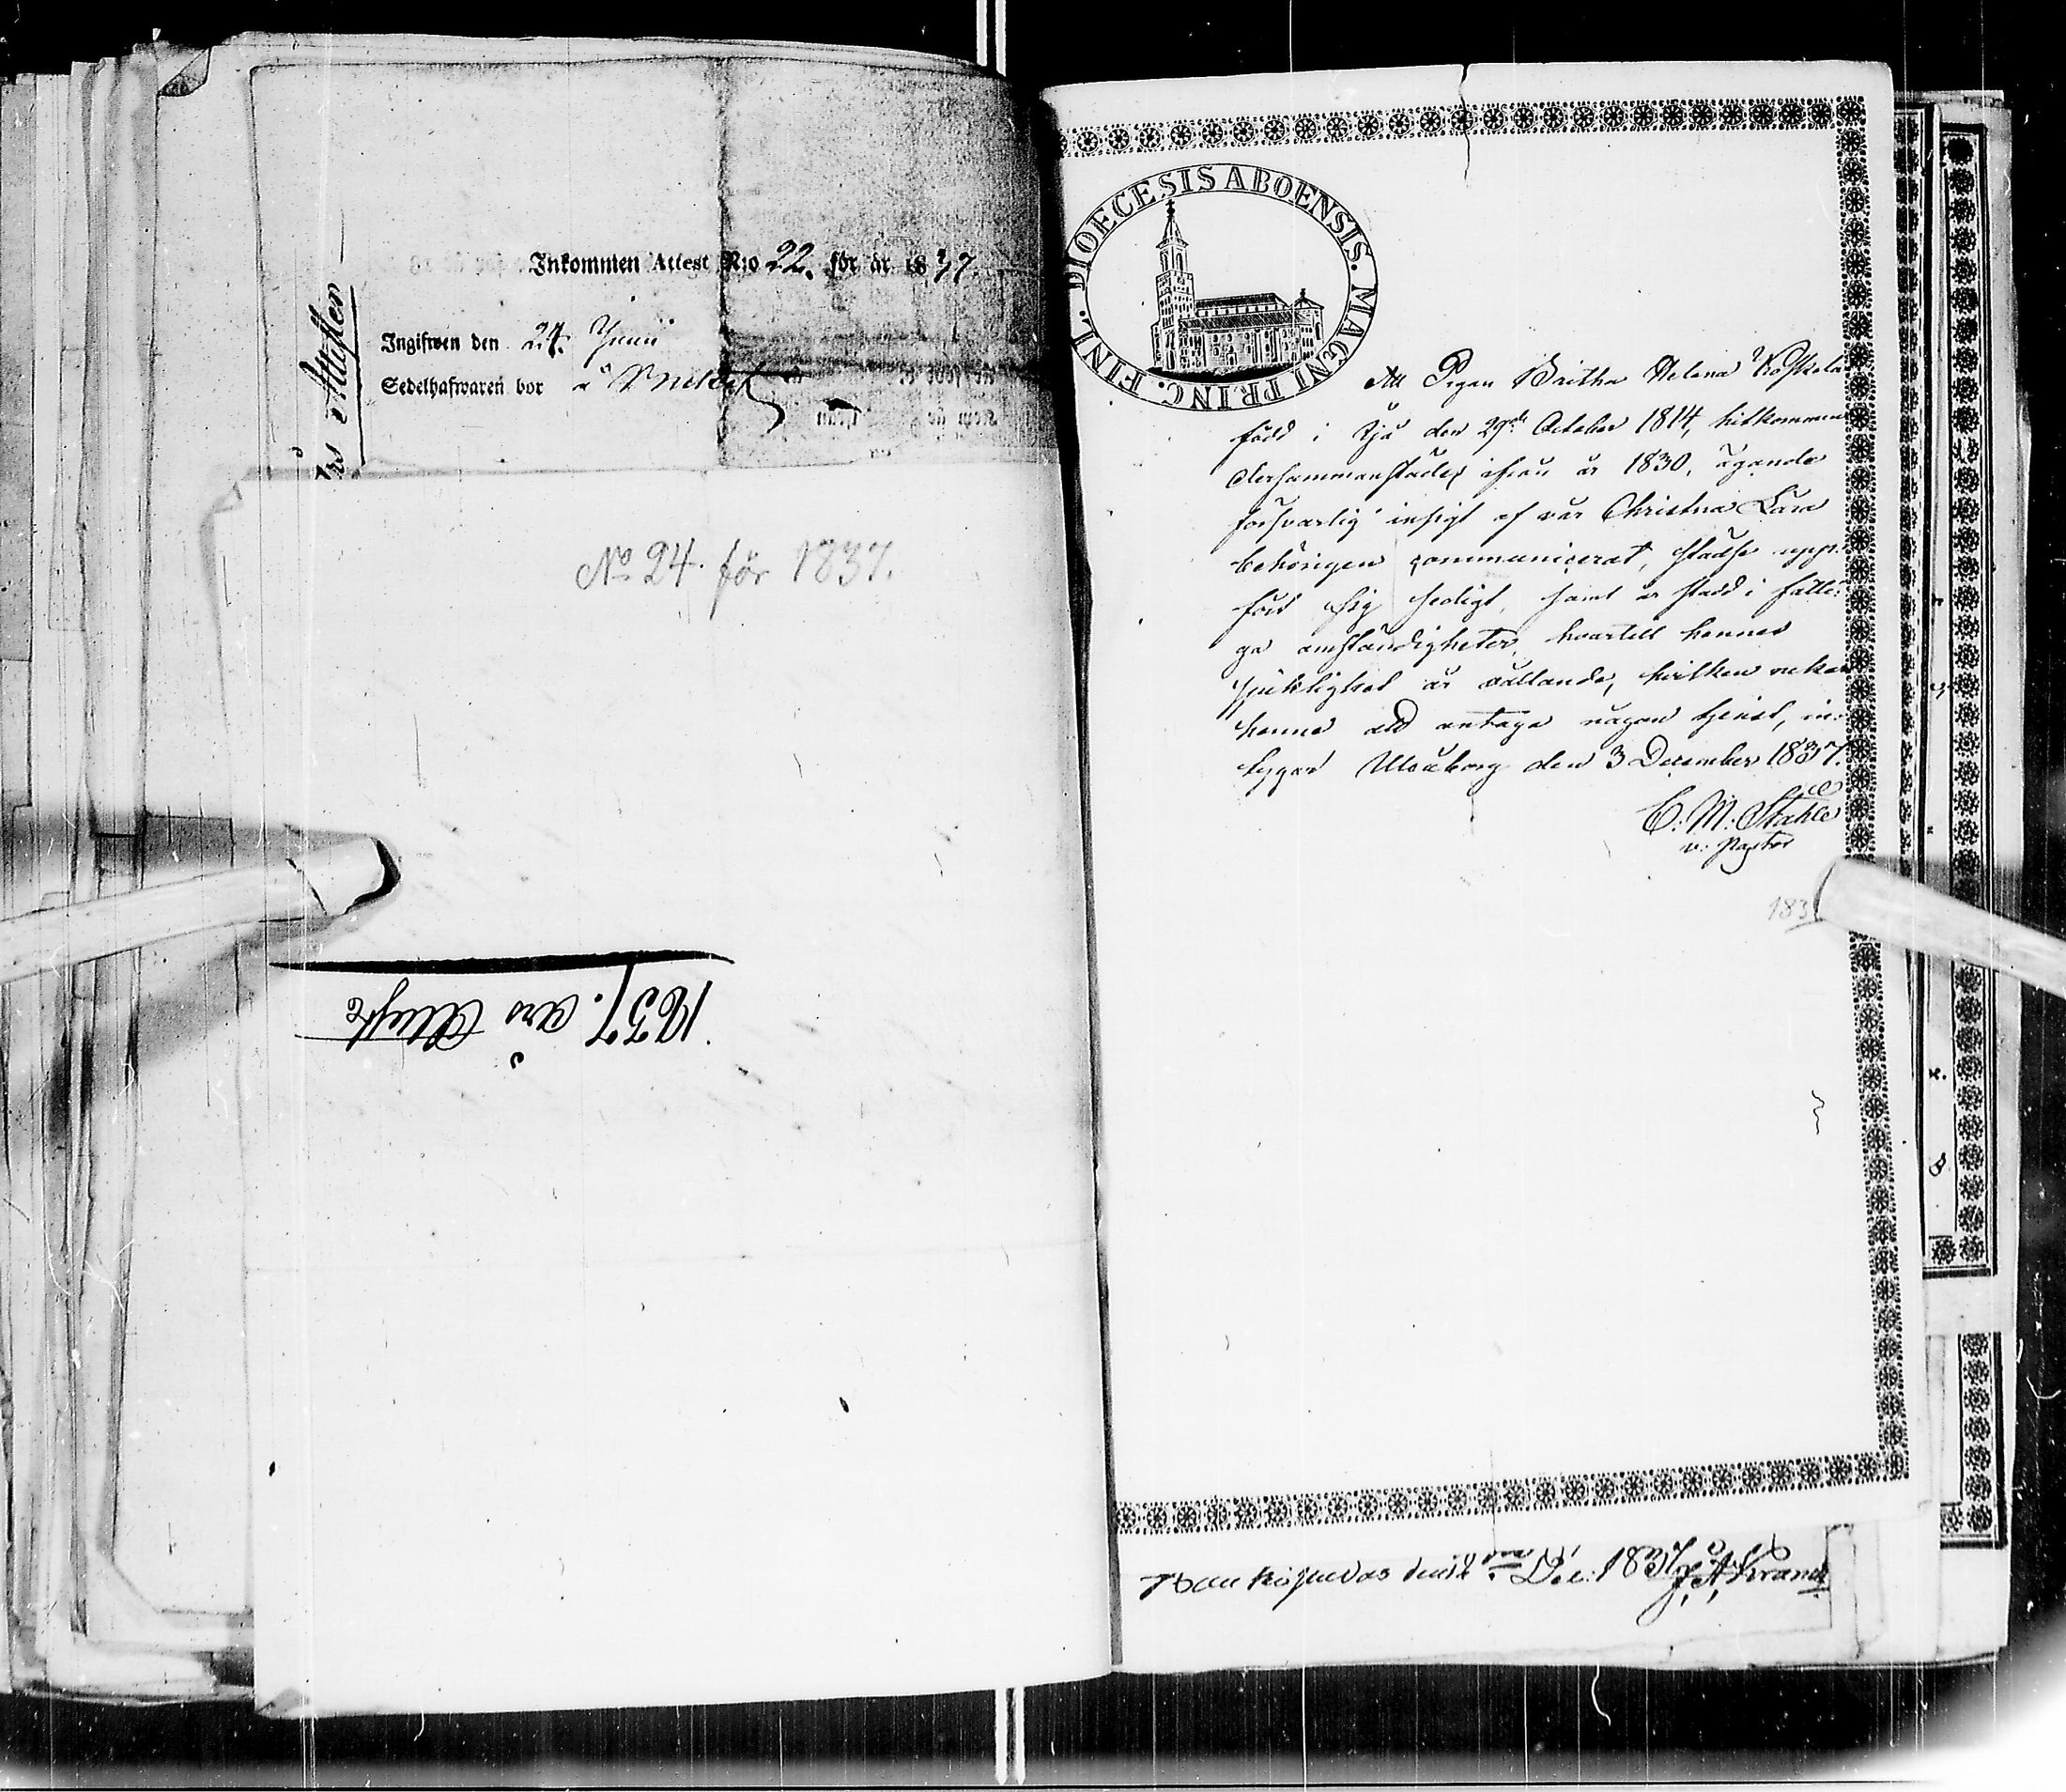 Inkommen Attest N:o 22. för år 1837.
Ingifwen den 24. Junii
Sedelhafwaren bor å
Års Attester
No 24. för 1837.
1837. års Attest
DIOECESIS ABOENSIS. MAGNI PRINC. FINL.
Att Pigan Britha Helena Koskela
född i Ijå den 29de October 1814, hitkommen
ifrån år 1830, ägande
försvarlig insigt af vår Christna Lära
behörigen communicerat, städse upp-
fört sig sedligt, samt är stadd i fatti-
ga omständigheter, hvartill hennes
sjuklighet är vållande, hvilken nekar
henne att antaga någon tjenst, in-
tygar Uleåborg den 3 December 1837.
C: M: Ståhle
v: Pastor
183
den Dec: 1837